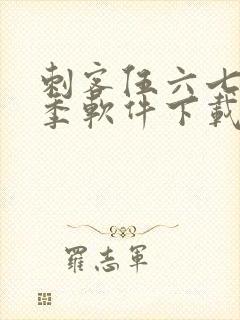 刺客伍六七
季軟件下載
羅志軍